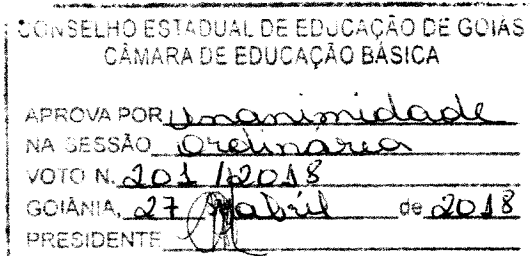 CONSELHO ESTADUAL DE EDUCAÇÃO DE GOIÁS
CÂMARA DE EDUCAÇÃO BÁSICA
APROVA POR Unanimidade
NA SESSÃO Ordinárea
VOTO N. 201 /2018
GOIÂNIA, 27 abril de 2018
PRESIDENTE